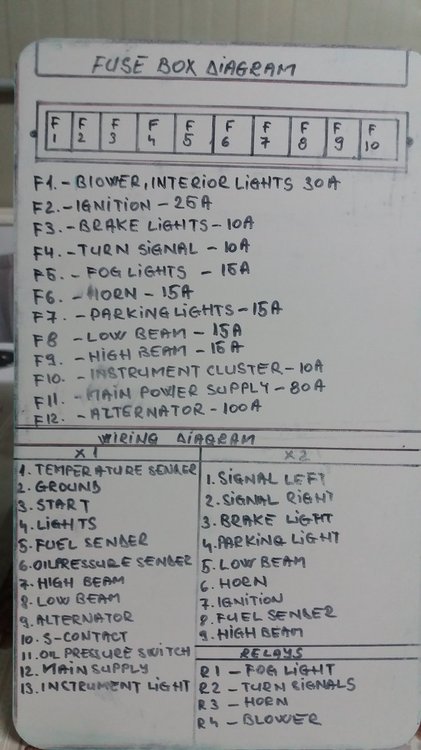 FUSE BOX DIAGRAM
F1 F2 F3 F4 F5 F6 F7 F8 F9 F10
F1.-BLOWER, INTERIOR LiGHTS 30A
F2.-IGNITION - 25A
F3.-BRAKE LIGHTS-10A
F4.-TURN SIGNAL - 10A
F5.-FOG LIGHTS - 15A
F6.-HORN - 15A
F7.-PARKING LIGHTS-15A
F8-LOW BEAM - 15A
F9.-HIGH BEAM - 15A
F10.-INSTRUMENT CLUSTER-10A
F11.-MAIN POWER SUPPLY-80A
F12.-ALTERNATOR-100A
WIRING DIAGRAM
X1
1. TEMPERATURE SENDER
2. GROUND
3. START
4. LIGHTS
5. FUEL SENDER
6. OILPRESSURE SENDER
7. HIGH BEAM
8. LOW BEAM
9. ALTERNATOR
10. S-CONTACT
11. OIL PRESSURE SWITCH
12. MAIN SUPPLY
13. INSTRUMENT LIGHT
X2
1. SIGNAL LEFT
2. SIGNAL RIGHT
3. BRAKE LIGHT
4. PARKING LIGHT
5. LOW BEAM
6. HORN
7. IGNITION
8. FUEL SENDER
9. HIGH BEAM
RELAYS
R1 - FOG LIGHT
R2 - TURN SIGNALS
R3 - HORN
R4 - BLOWER